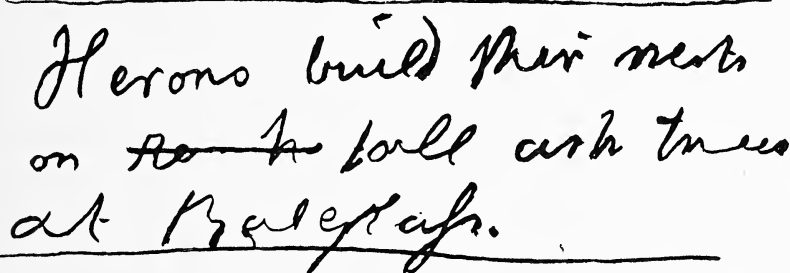 Herons build their nests
on tall ash trees
at